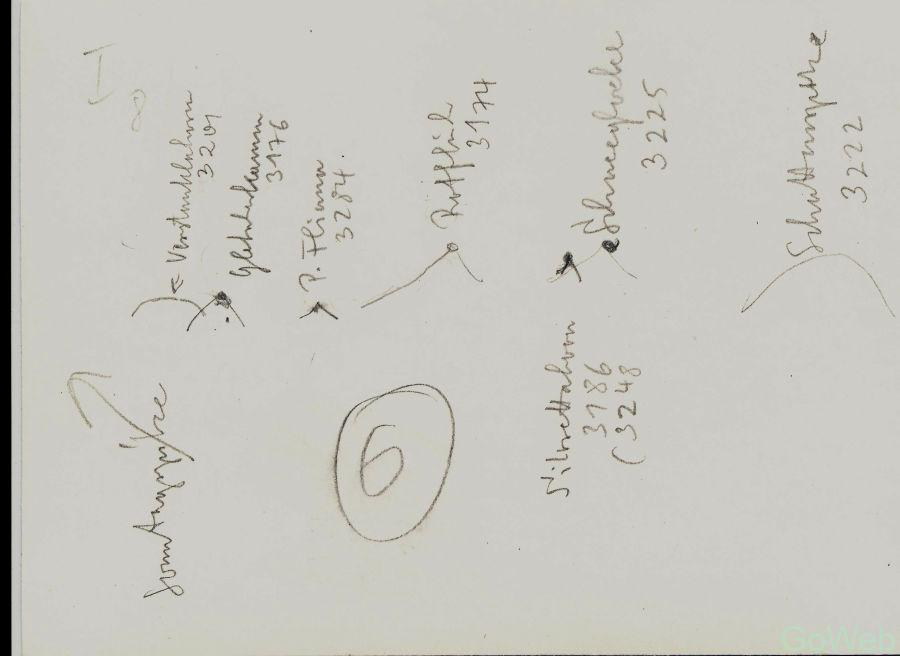 I
8
Verstanklahorn
3201
Gletscherkamm
3176
P. Fliana
3284
Rotfluh
3174
Schneeglocke
3225
Schattenspitze
3222
Sonntagspitze
6
Silvrettahorn
3186
(3248
GoWeb